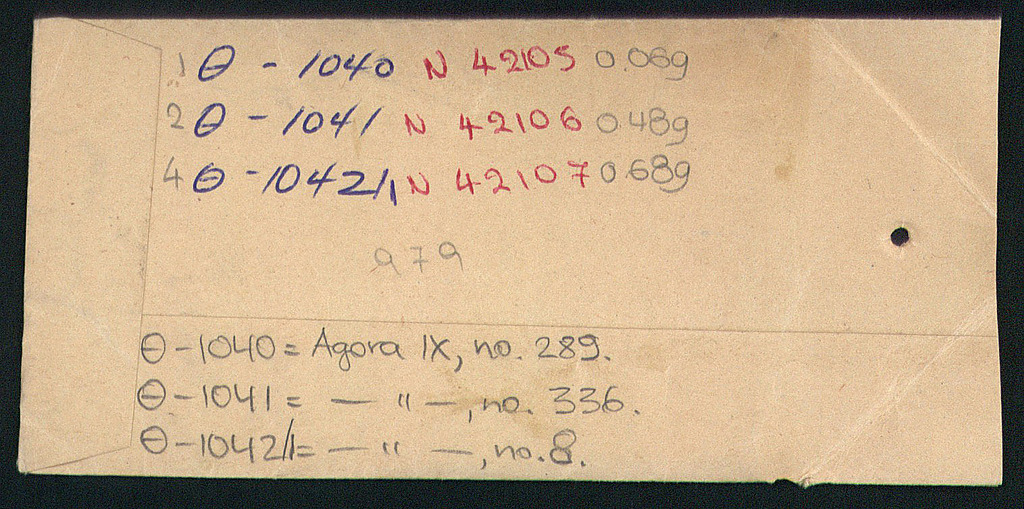 1 Θ - 1040 N 42105 0.069
2 Θ - 1041 N 42106 0.489
4 Θ - 1042/1 N 42107 0.689
979
Θ - 1040 = Agora IX, no. 289.
Θ - 1041 = — " —, no. 336.
Θ - 1042/1 = — " —, no. 8.